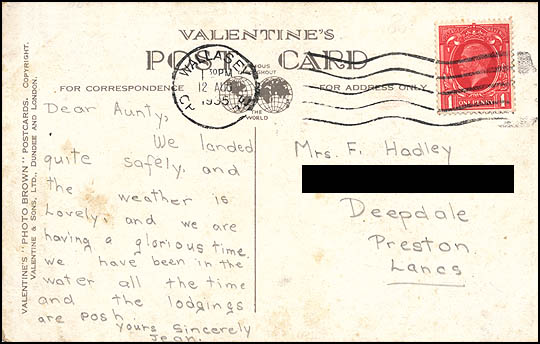 VALENTINE'S
POST CARD
FAMOUS THROUGHOUT
THE WORLD
FOR CORRESPONDENCE
FOR ADDRESS ONLY
WALLASEY
30PM
12 AUG
1935
ONE PENNY
1 1
VALENTINE'S "PHOTO BROWN" POSTCARDS, COPYRIGHT.
VALENTINE & SONS, LTD., DUNDEE AND LONDON.
Dear Aunty,
We landed
quite safely, and
the weather is
Lovely, and we are
having a glorious time.
we have been in the
water all the time
and the lodgings
are posh.
yours sincerely
Jean.
Mrs. F. Hadley
Deepdale
Preston
Lancs